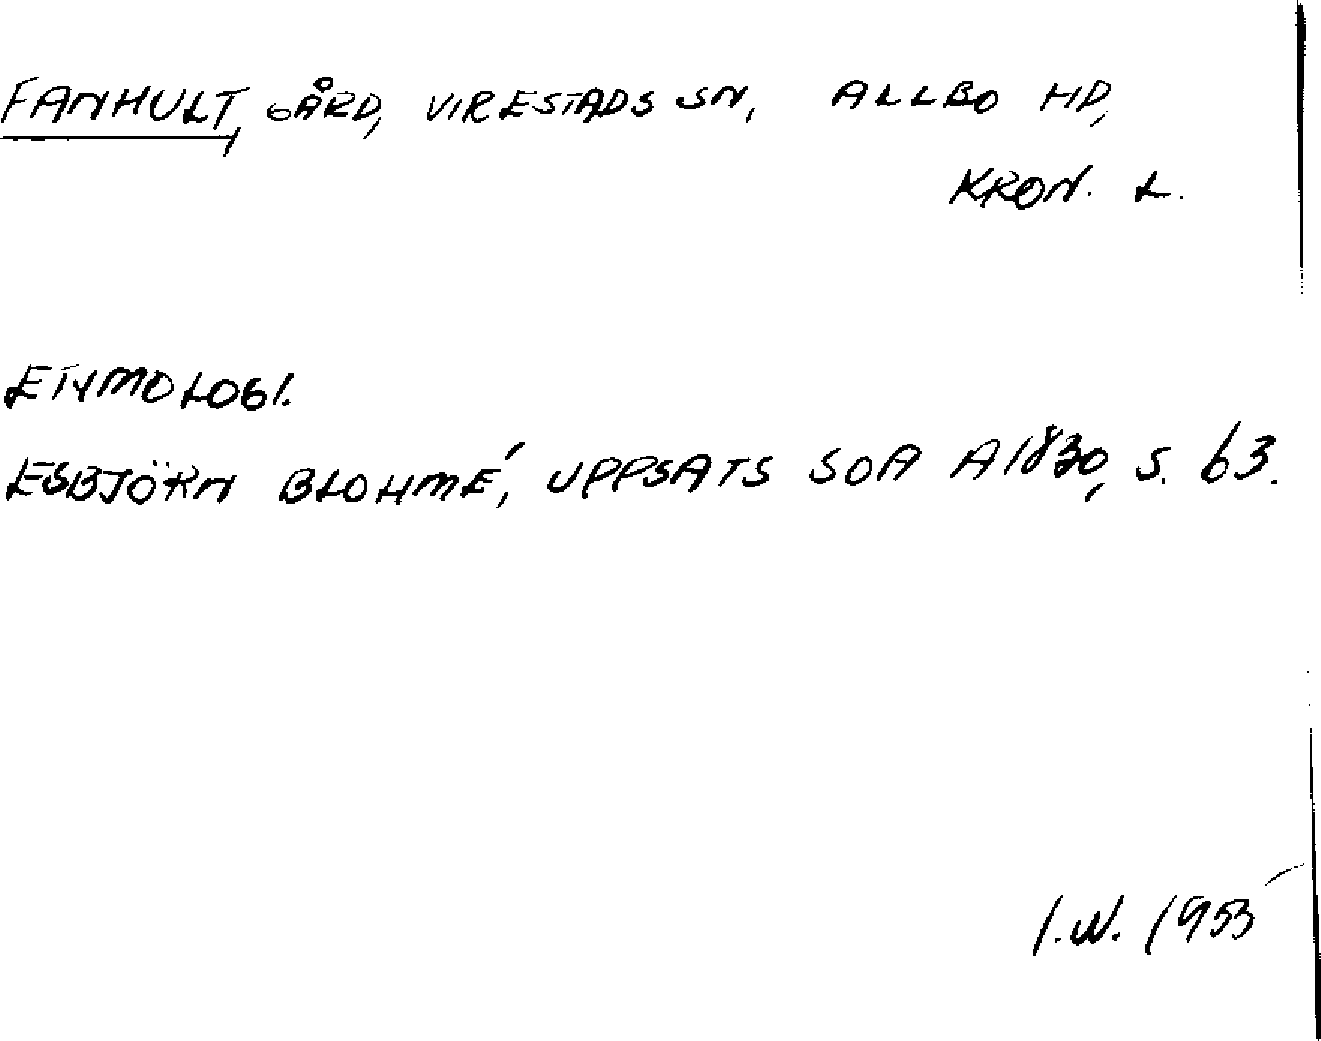 FANHULT, GÅRD, VIRESTADS SN, ALLBO HD,
KRON. L.
ETYMOLOGI.
ESBJÖRN BLOHMÉ, UPPSATS SOA A1830, S. 63.
I.W. 1953